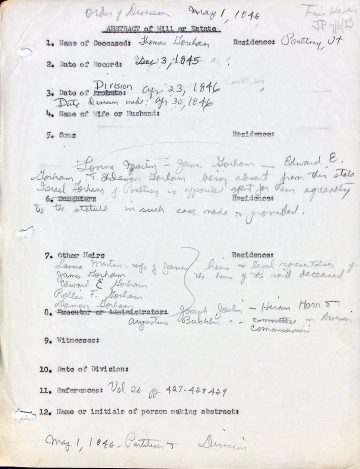 Order of Division May 1, 1846
Fair Haven
ABSTRACT of Will or Estate
1. Name of Deceased: Thomas Gorham Residence: Poultney, Vt
2. Date of Record: Dec 3, 1845
3. Date of Probate: Division Apr 23, 1846
Date Division made: Apr 30, 1846
4. Name of Wife or Husband:
5. Sons Residence:
Lorina Martin - James Gorham - Edward E.
Gorham, & Damon Gorham being absent from this state
Israel Gorham of Poultney is appointed agent for them agreeably
6. Daughters Residence:
to the statute in such case made & provided.
7. Other Heirs Residence:
Lorina Martin - wife of James
James Gorham
Edward E Gorham
Rollin F. Gorham
Damon Gorham
heirs & legal representatives of
the heirs of the said deceased
8. Executor or Administrator: Joseph Joslin - Hiram
Augustus committee on division
Commissioners
9. Witnesses:
10. Date of Division:
11. References: Vol 20 pg 427-428-429
12. Name or initials of person making abstract:
May 1, 1846 - Petition & Division